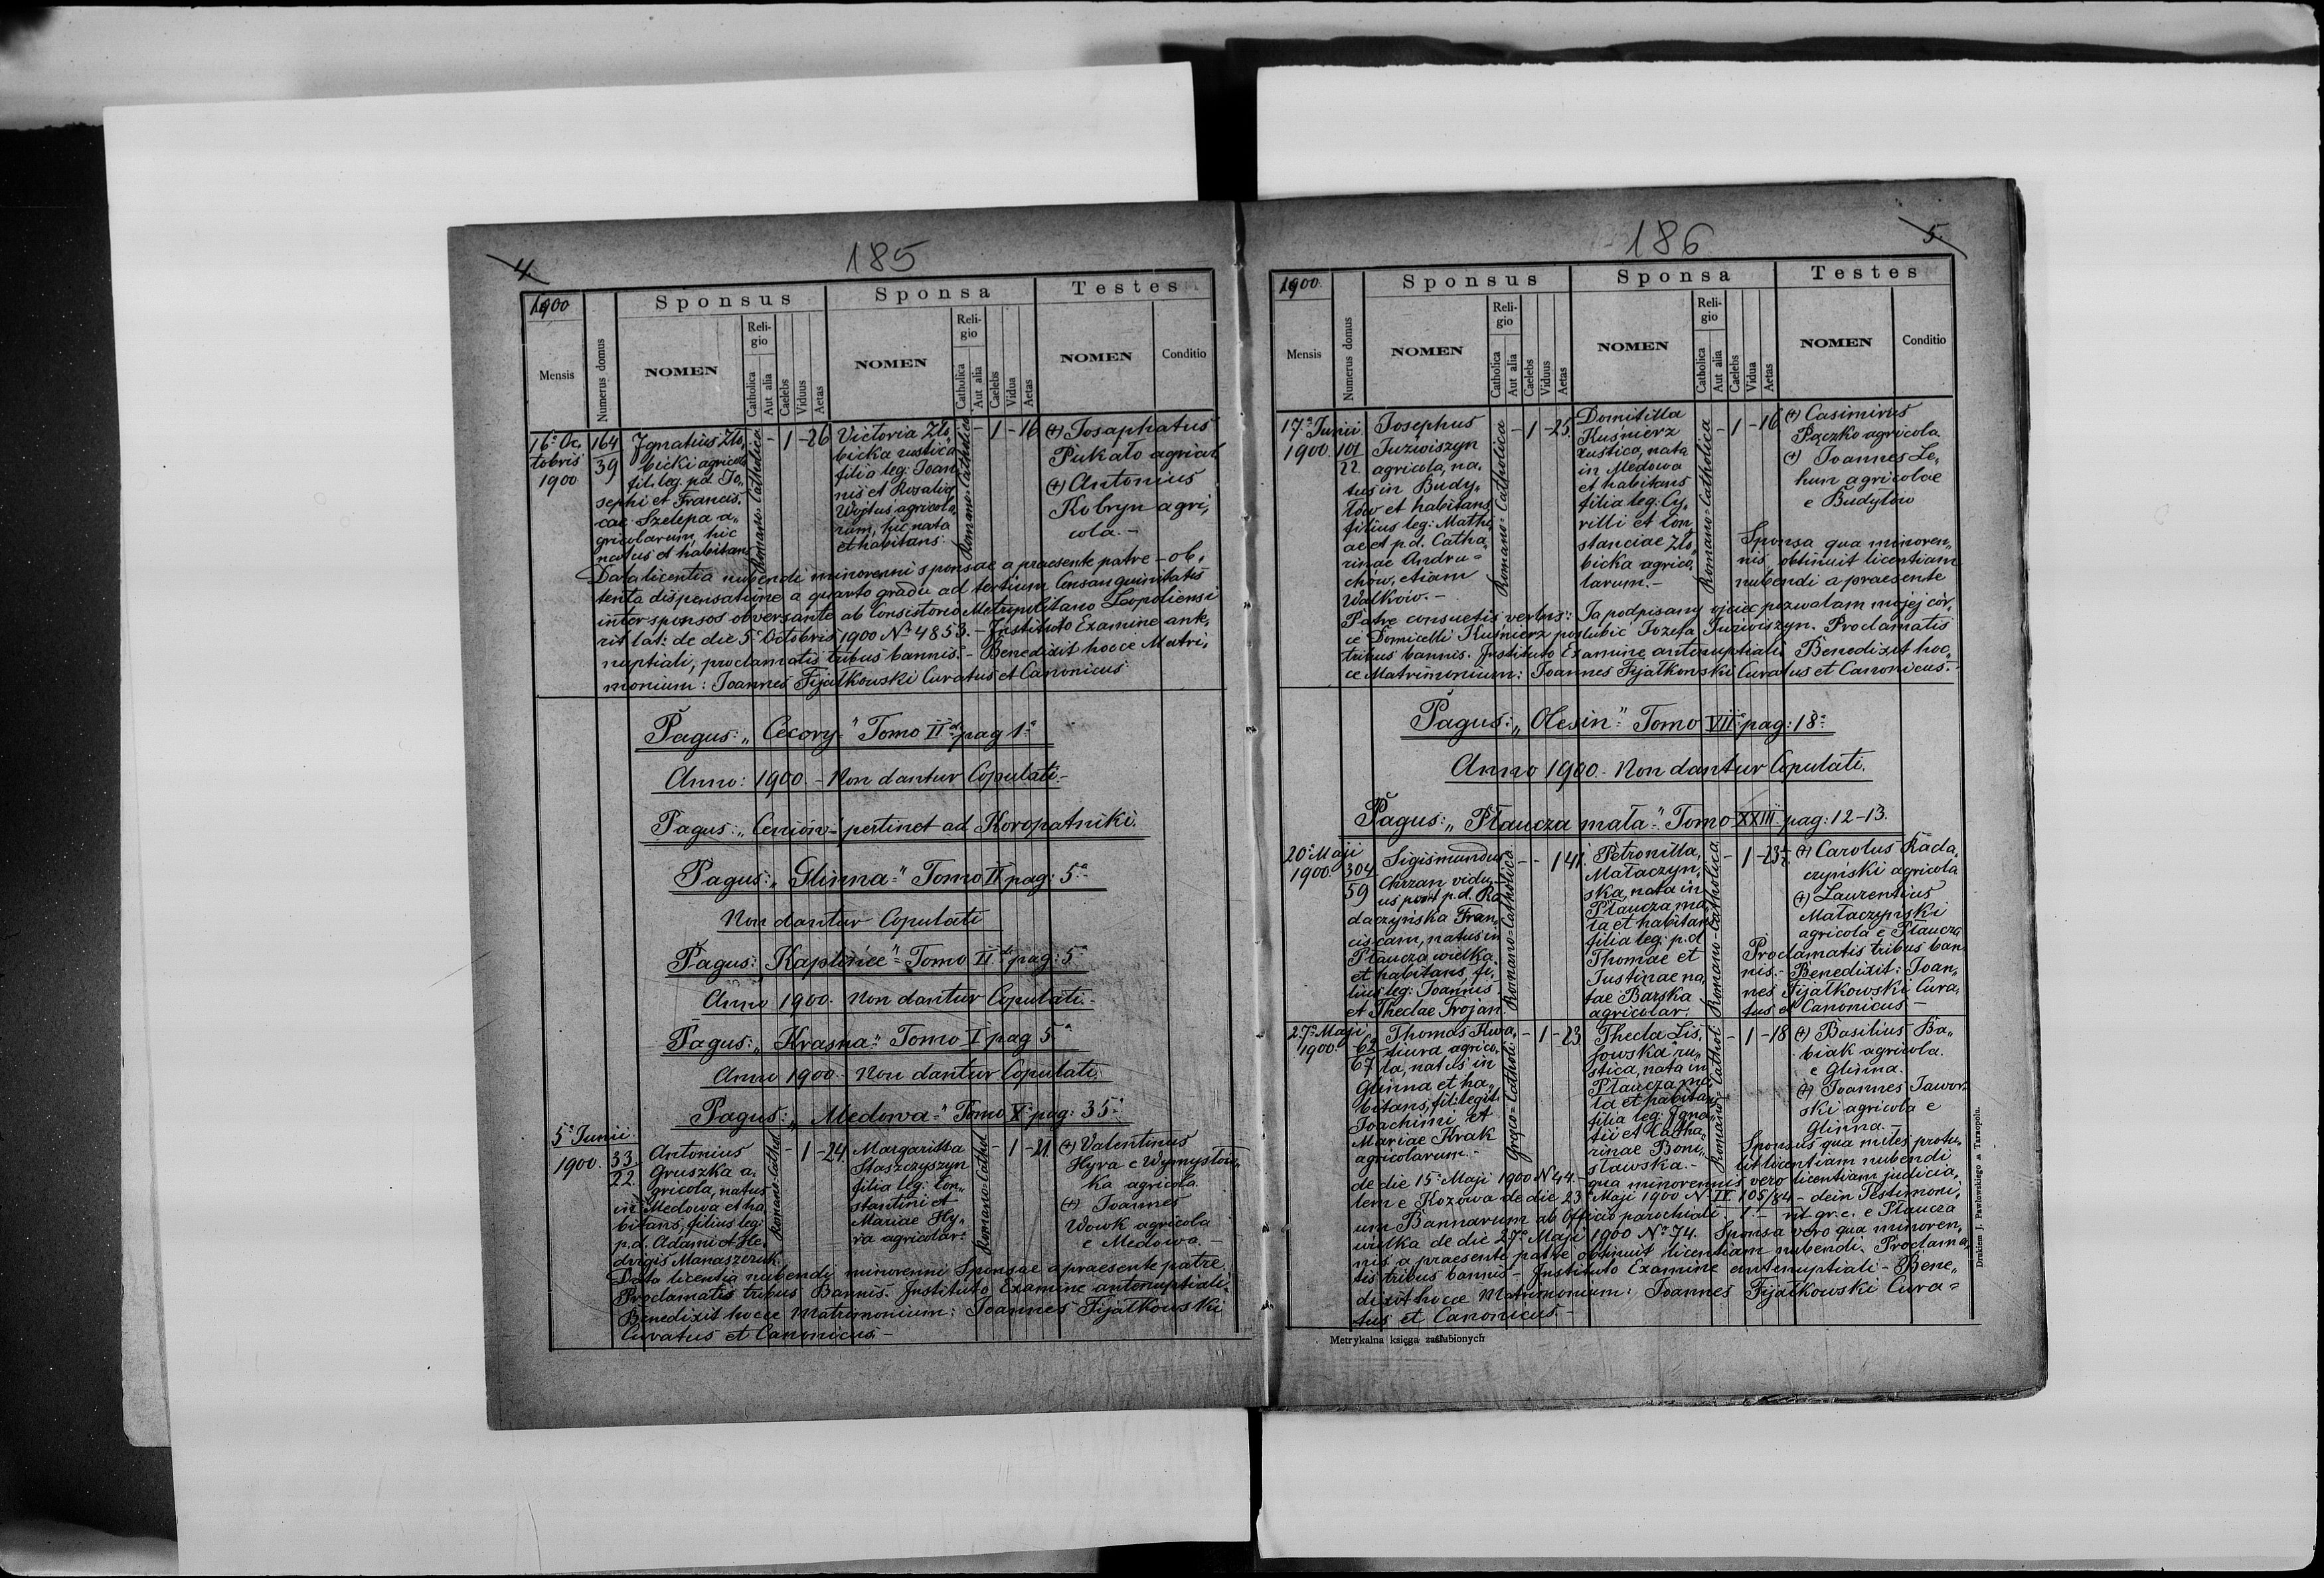 4.
185
1900
Sponsus
Sponsa
Testes
Mensis
Numerus domus
NOMEN
Reli-
gio
Catholica
Aut alia
Caelebs
Viduus
Aetas
NOMEN
Reli-
gio
Catholica
Aut alia
Caelebs
Vidua
Aetas
NOMEN
Conditio
16a Oc,
tobris
1900
164
39
Ignatius Zło,
bicki agricola
fil. leg. pd Jo,
sephi et Francis,
cae Szelepa a,
gricolarum, hic
natus et habitans
Romano-Catholica
- 1 - 26
Victoria Zło,
bicka rustica
filia leg: Joan,
nis et Rosaliae
Wojtus agricola,
rum, hic nata
et habitans.
Romano-Catholica
- 1 - 16
(+) Josaphatus
Pukało agricol
(+) Antonius
Kobryn agri,
cola. -
Data licentia nubendi minorenni sponsae a praesente patre - ob,
tenta dispensatione a quarto gradu ad tertium Consanguinitatis
inter sponsos obversante ab Consistorio Metropolitano Leopoliensi
rit lat: de die 5 Octobris 1900 No 4853. - Instituto Examine ante,
nuptiali, proclamatis tribus bannis. - Benedixit hocce Matri,
monium: Joannes Fijałkowski Curatus et Canonicus.
Pagus: „Cecory" Tomo II pag 1a
Anno: 1900. - Non dantur Copulati. -
Pagus: „Ceniów" pertinet ad Koropatniki.
Pagus: „Glinna" Tomo II pag: 5a
Non dantur Copulati
Pagus: Kaplińce" Tomo II pag: 5a
Anno 1900. Non dantur Copulati. -
Pagus: „Krasna" Tomo I pag 5a
Anno 1900. Non dantur Copulati.
Pagus: „Medowa" Tomo X pag: 35a
5a Junii
1900.
33
22
Antonius
Gruszka a,
gricola, natus
in Medowa et ha
bitans, filius leg:
p.d. Adami et He,
dvigis Manaszczuk
Romano-Cathol
- 1 - 24
Margaritta
Staszczyszyn
filia leg: Con,
stantini et
Mariae Hy,
ra agricolar:
Romano-Cathol
- 1 - 21
(+) Valentinus
Hyra e Wymysłow,
ka agricola.
(+) Joannes
Wowk agricola
e Medowa. -
Data licentia nubendi minorenni Sponsae a praesente patre
Proclamatis tribus Bannis. Instituto Examine antenuptiali.
Benedixit hocce Matrimonium: Joannes Fijałkowski
Curatus et Canonicus. -
186
5.
1900
Sponsus
Sponsa
Testes
Mensis
Numerus domus
NOMEN
Reli-
gio
Catholica
Aut alia
Caelebs
Viduus
Aetas
NOMEN
Reli-
gio
Catholica
Aut alia
Caelebs
Vidua
Aetas
NOMEN
Conditio
17a Junii
1900.
101
22
Josephus
Juzwiszyn
agricola, na,
tus in Budy,
łow et habitans
filius leg: Mathi,
ae et p.d. Catha,
rinae Andru=
chów, etiam
Walków. -
Romano=Catholica
- 1 - 25.
Domitilla
Kuśnierz
rustica, nata
in Medowa
et habitans
filia leg: Cy,
rilli et Con
stanciae Zło,
bicka agrico,
larum. -
Romano=Catholica
- 1 - 16
(+) Casimirus
Pączko agricola
(+) Joannes Le,
hun agricolae
e Budyłow
Sponsa qua minoren,
nis obtinuit licentiam
nubendi a praesente
Patre consuetis verbis: Ja podpisany ojciec pozwalam mojej cór,
ce Domicelli Kuśnierz poślubić Józefa Juzwiszyn. Proclamatis
tribus bannis. Instituto Examine antenuptiali. Benedixit hoc,
ce Matrimonium: Joannes Fijałkowski Curatus et Canonicus. -
Pagus: „Olesin" Tomo VII pag: 18a
Anno 1900. Non dantur Copulati.
Pagus: „Płaucza mała" Tomo XXIII pag: 12-13.
20a Maji
1900.
304
59
Sigismundus
Chrzan vidu,
us post p.d. Ra
daczyńska Fran,
ciscam, natus in
Płaucza wielka
et habitans, fi,
lius leg: Joannis
et Theclae Trojan.
Romano=Catholica
- - 1 41.
Petronilla,
Małaczyń,
ska, nata in
Płaucza ma,
ła et habitans
filia leg: p.d
Thomae et
Justinae na,
tae Barska
agricolar.
Romano-Catholica
- 1 - 23½
(+) Carolus Rada,
czyński agricola
(+) Laurentius
Małaczyński
agricola e Płaucza
Proclamatis tribus ban
nis. - Benedixit: Joan,
nes Fijałkowski Cura,
tus et Canonicus -
27a Maji
1900.
62
67
Thomas Kwa,
śiura agrico,
la, natus in
Glinna et ha,
bitans, fil: legit:
Joachimi et
Mariae Krak
agricolarum. -
Greco=Catholi
- 1 - 23.
Thecla Lis,
sowska ru,
stica, nata in
Płaucza ma,
ła et habitans
filia leg: Igna,
tii et Catha,
rinae Boni,
sławska. -
Romano-Cathol
- 1 - 18
(+) Basilius Ba,
biak agricola.
e Glinna.
(+) Joannes Jawor
ski agricola e
Glinna. -
Sponsus qua miles protu,
lit licentiam nubendi
de die 15a Maji 1900 N 44. - qua minorennis vero licentiam judicia,
lem e Kozowa de die 23 Maji 1900 N IV 105/84 1. - dein Testimoni,
um Bannarum ab Officio parochiali rit. gr. c. e Płaucza
wielka de die 27a Maji 1900 No 74. Sponsa vero qua minoren,
nis a praesente patre obtinuit licentiam nubendi. Proclama,
tis tribus bannis - Instituto Examine antenuptiali - Bene,
dixit hocce Matrimonium: Joannes Fijałkowski Cura=
tus et Canonicus. -
Metrykalna księga zaślubionych
Drukiem J. Pawłowskiego w Tarnopolu.